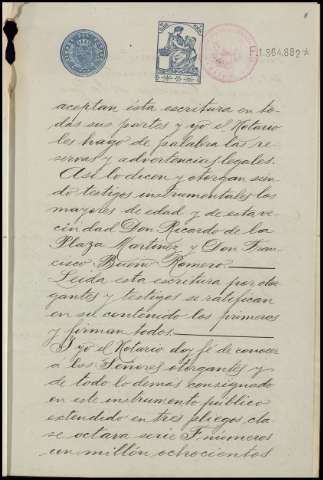 F.1.364.882*
aceptan ésta escritura en to-
das sus partes y yo el Notario
les hago de palabra las re-
servas y advertencias legales.
Así lo dicen y otorgan sien-
do testigos instrumentales los
mayores de edad y de esta ve-
cindad Don Ricardo de la
Plaza Martinez y Don Fran-
cisco Bueno Romero.
Leida esta escritura por otor-
gantes y testigos se ratifican
en su contenido los primeros
y firman todos.
Y yo el Notario doy fé de conocer
a los Señores otorgantes y
de todo lo demás consignado
en este instrumento público
extendido en tres pliegos cla-
se octava serie F. números
un millón ochocientos